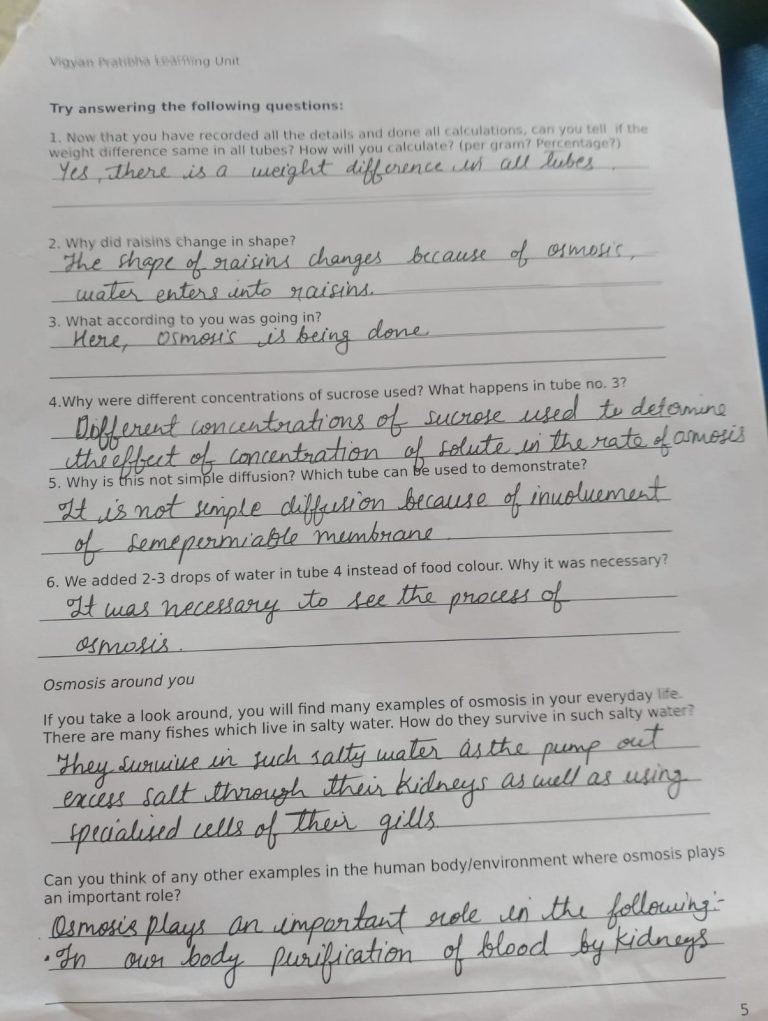 Vigyan Pratibha Learning Unit
Try answering the following questions:
1. Now that you have recorded all the details and done all calculations, can you tell if the
weight difference same in all tubes? How will you calculate? (per gram? Percentage?)
Yes, there is a weight difference in all tubes.
2. Why did raisins change in shape?
The shape of raisins changes because of osmosis,
water enters into raisins.
3. What according to you was going in?
Here, osmosis is being done
4.Why were different concentrations of sucrose used? What happens in tube no. 3?
Different concentrations of sucrose used to detomine
the effect of concentration of solute in the rate of osmosis
5. Why is this not simple diffusion? Which tube can be used to demonstrate?
It is not simple diffusion because of involvement
of semepermiable membrane.
6. We added 2-3 drops of water in tube 4 instead of food colour. Why it was necessary?
It was necessary to see the process of
osmosis.
Osmosis around you
If you take a look around, you will find many examples of osmosis in your everyday life.
There are many fishes which live in salty water. How do they survive in such salty water?
They survive in such salty water as the pump out
excess salt through their kidneys as well as using
specialised cells of their gills.
Can you think of any other examples in the human body/environment where osmosis plays
an important role?
Osmosis plays an important role in the following:-
• In our body purification of blood by kidneys
5